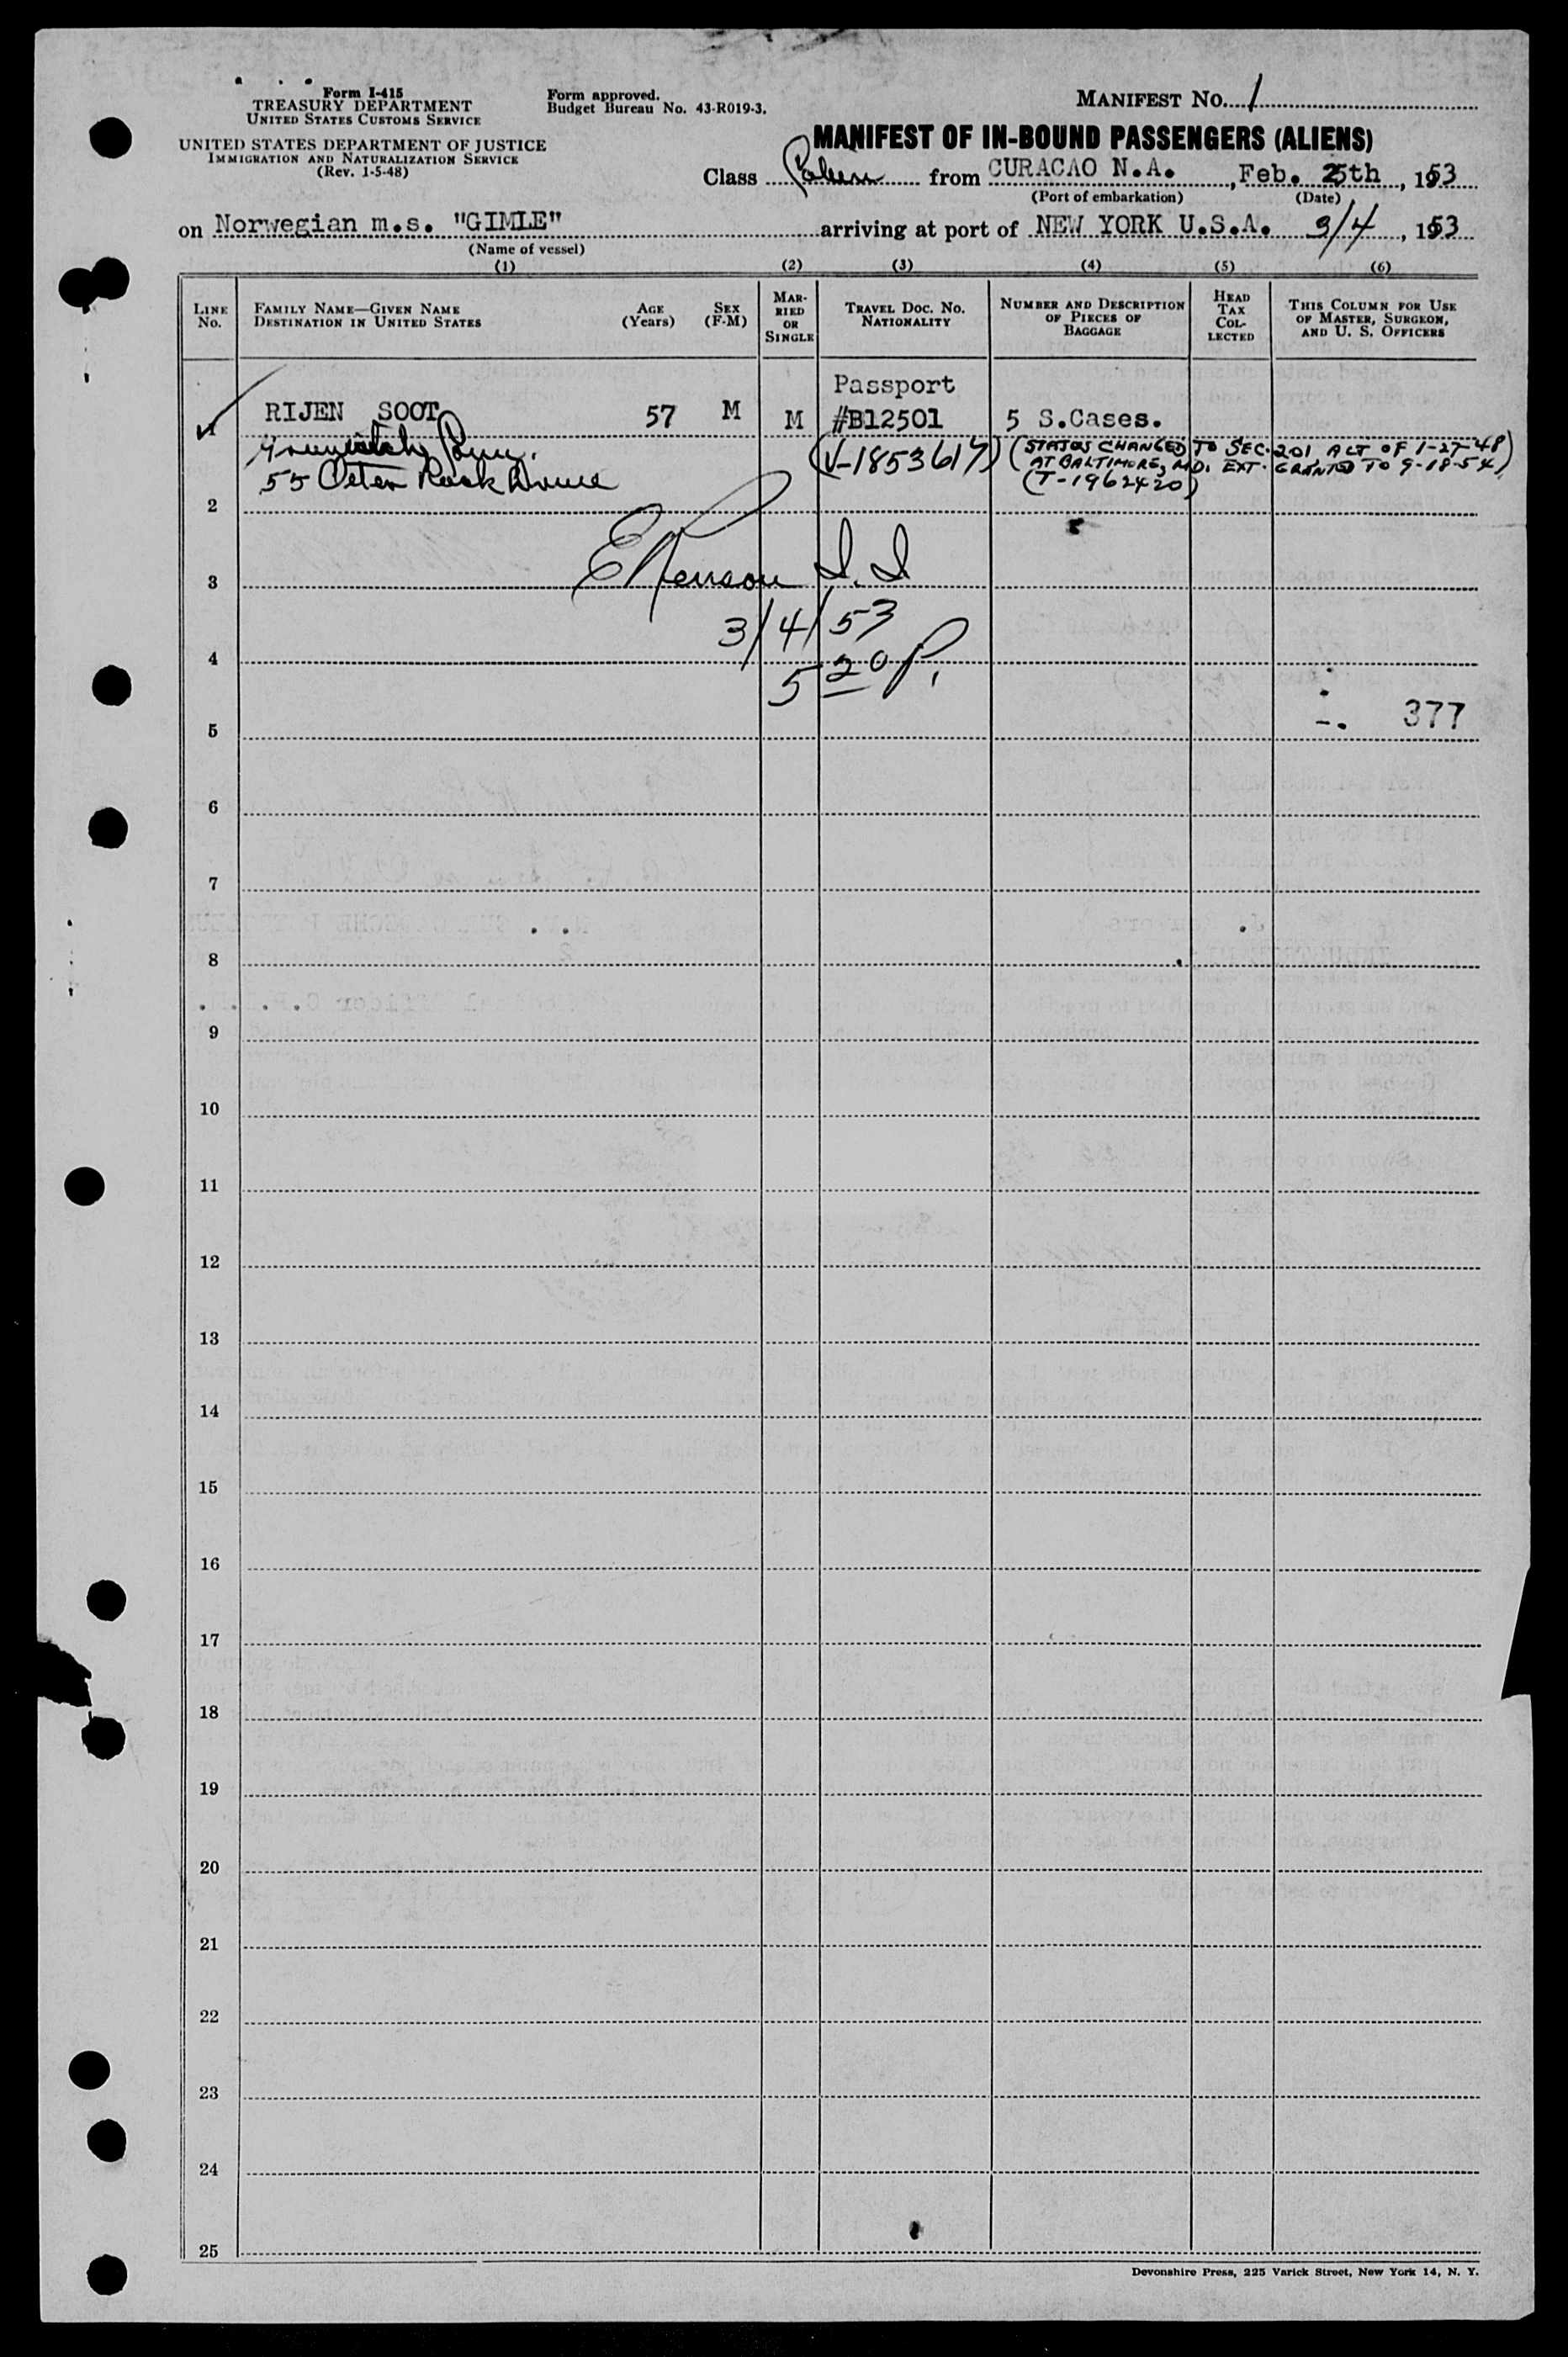 Form I-415
TREASURY DEPARTMENT
UNITED STATES CUSTOMS SERVICE
UNITED STATES DEPARTMENT OF JUSTICE
IMMIGRATION AND NATURALIZATION SERVICE
(Rev. 1-5-48)
Form approved.
Budget Bureau No. 43-R019-3.
MANIFEST NO. 1
MANIFEST OF IN-BOUND PASSENGERS (ALIENS)
Class from CURACAO N.A., Feb. 25th, 1953
(Port of embarkation) (Date)
on Norwegian m.s. "GIMLE" arriving at port of NEW YORK U.S.A. 3/4, 1953
(Name of vessel)
(1) (2) (3) (4) (5) (6)
LINE No. FAMILY NAME—GIVEN NAME DESTINATION IN UNITED STATES AGE (Years) SEX (F-M) MARRIED OR SINGLE TRAVEL DOC. NO. NATIONALITY NUMBER AND DESCRIPTION OF PIECES OF BAGGAGE HEAD TAX COLLECTED THIS COLUMN FOR USE OF MASTER, SURGEON, AND U. S. OFFICERS
Passport
1 RIJEN SOOT 57 M M #B12501 5 S.Cases.
(V-1853617) (STATUS CHANGED TO SEC. 201, ACT OF 1-27-48
AT BALTIMORE, MD. EXT. GRANTED TO 9-18-54)
55 Rock
(T-1962420)
2
I. I
3
3/4/53
4
5 20 P.
377
5
6
7
8
9
10
11
12
13
14
15
16
17
18
19
20
21
22
23
24
25
Devonshire Press, 225 Varick Street, New York 14, N. Y.